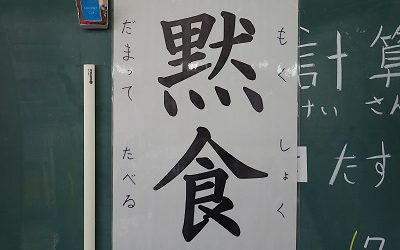 黙食
もくしょく
だまって たべる
計算
けいさん
たす
17